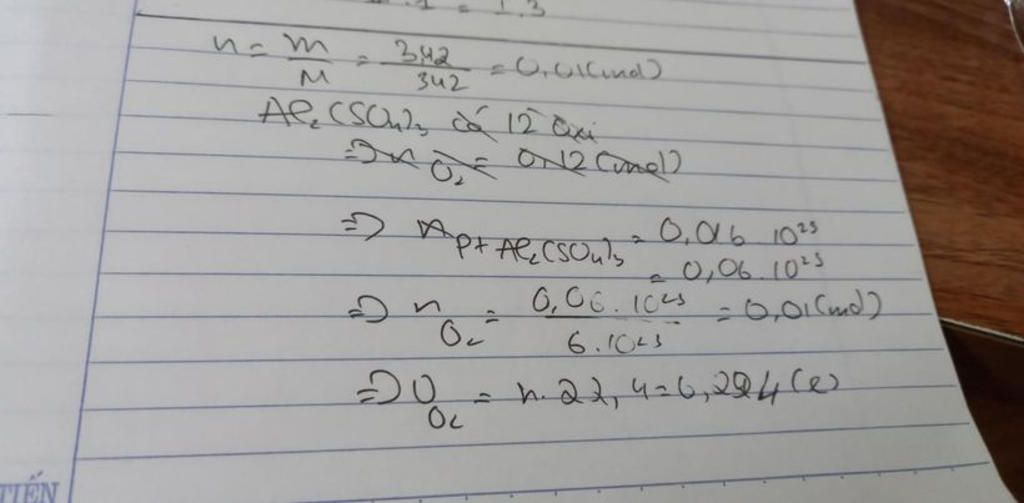 = 1.3
n = m/M = 3,42/342 = 0,01 (mol)
Al₂(SO₄)₃ có 12 Oxi
=> n O₂ = 0,12 (mol)
=> n pt Al₂(SO₄)₃ = 0,01.6.10²³
= 0,06.10²³
=> n O₂ = 0,06.10²³/6.10²³ = 0,01 (mol)
=> V O₂ = n.22,4 = 0,224 (l)
TIẾN